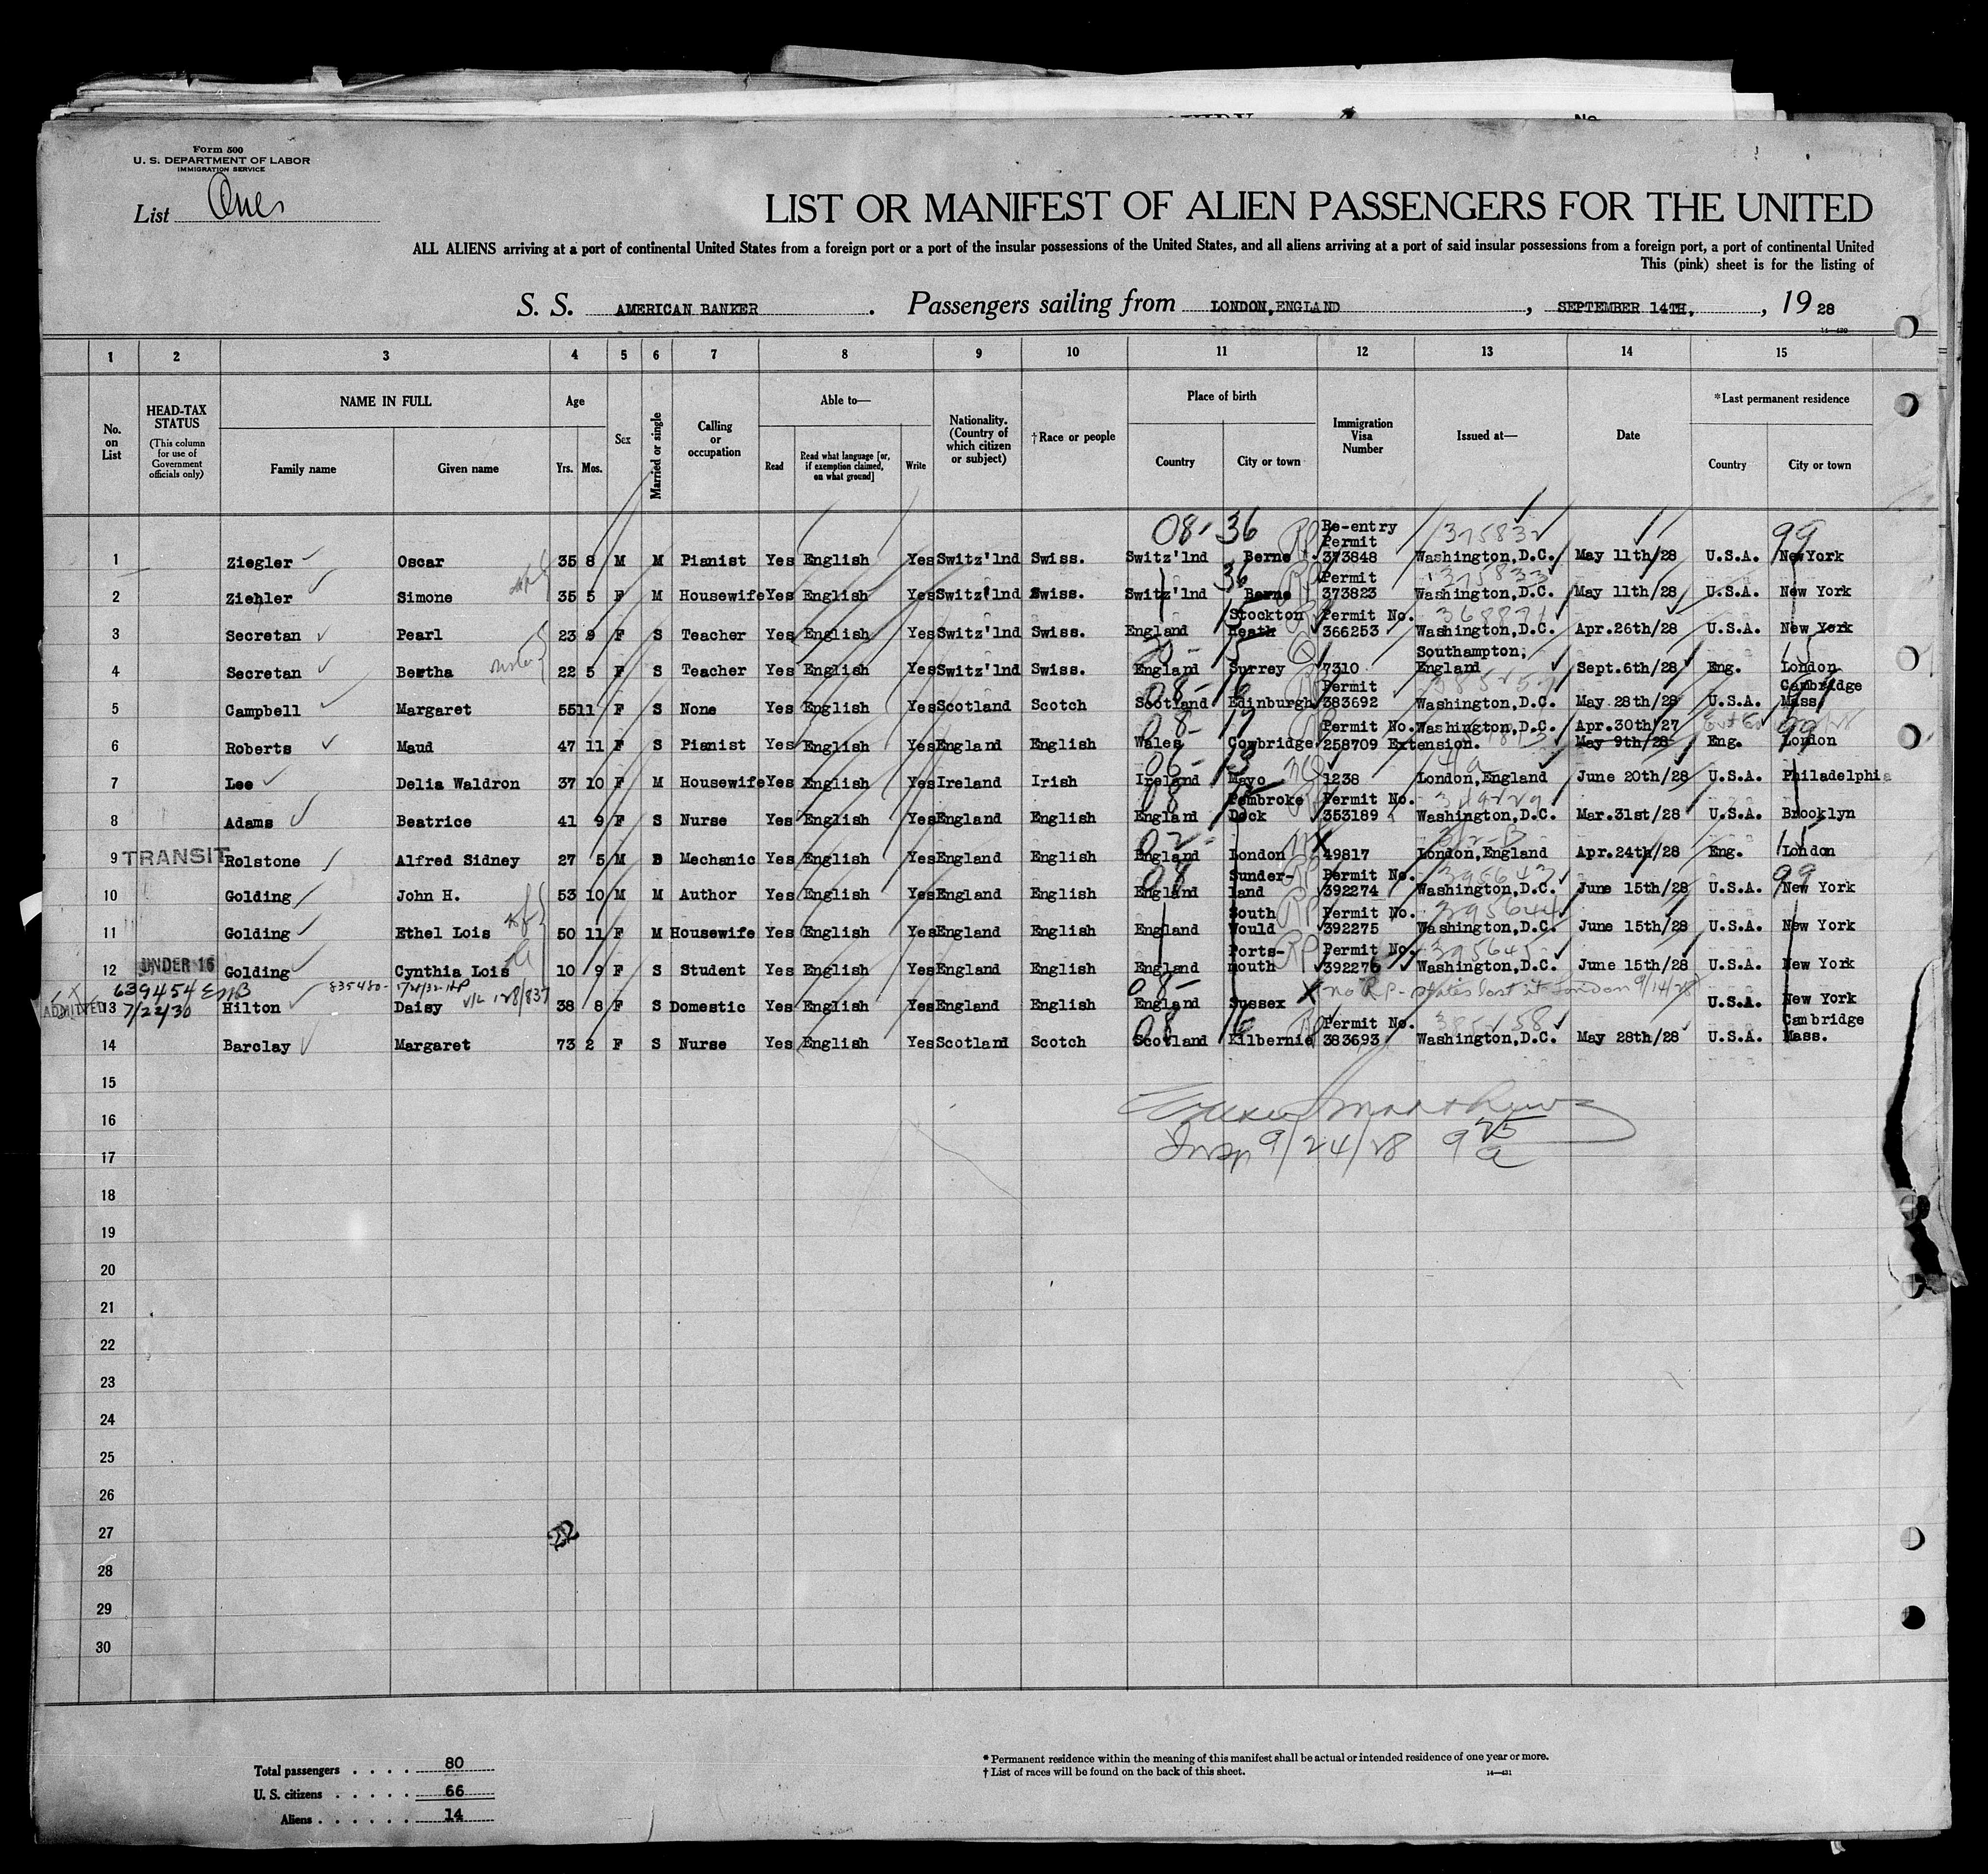 Form 500
U. S. DEPARTMENT OF LABOR
IMMIGRATION SERVICE
List One
LIST OR MANIFEST OF ALIEN PASSENGERS FOR THE UNITED
ALL ALIENS arriving at a port of continental United States from a foreign port or a port of the insular possessions of the United States, and all aliens arriving at a port of said insular possessions from a foreign port, a port of continental United
This (pink) sheet is for the listing of
S. S. AMERICAN BANKER . Passengers sailing from LONDON,ENGLAND , SEPTEMBER 14TH. , 19 28
1 2 3 4 5 6 7 8 9 10 11 12 13 14 15
No. on List
HEAD-TAX STATUS (This column for use of Government officials only)
NAME IN FULL Family name Given name
Age Yrs. Mos.
Sex
Married or single
Calling or occupation
Able to— Read Read what language [or, if exemption claimed, on what ground] Write
Nationality. (Country of which citizen or subject)
†Race or people
Place of birth Country City or town
Immigration Visa Number
Issued at—
Date
*Last permanent residence Country City or town
08- 36 Re-entry Permit 375832 99
1 Ziegler Oscar 35 8 M M Pianist Yes English Yes Switz'lnd Swiss. Switz'lnd Berne 373848 Washington,D.C. May 11th/28 U.S.A. NewYork
36 RP Permit 375833
2 Ziehler Simone 35 5 F M Housewife Yes English Yes Switz'lnd Swiss. Switz'lnd Berne 373823 Washington,D.C. May 11th/28 U.S.A. New York
Stockton Permit No.
3 Secretan Pearl 23 9 F S Teacher Yes English Yes Switz'lnd Swiss. England Heath 366253 Washington,D.C. Apr.26th/28 U.S.A. New York
Southampton, 15
4 Secretan Bertha 22 5 F S Teacher Yes English Yes Switz'lnd Swiss. England Surrey 7310 England Sept.6th/28 Eng. London
08- Permit Cambridge
5 Campbell Margaret 55 11 F S None Yes English Yes Scotland Scotch Scotland Edinburgh 383692 Washington,D.C. May 28th/28 U.S.A. Mass.
08- 17 Permit No. Washington,D.C. Apr.30th/27
6 Roberts Maud 47 11 F S Pianist Yes English Yes England English Wales Cowbridge 258709 Extension. May 9th/28 Eng. London
06- 13
7 Lee Delia Waldron 37 10 F M Housewife Yes English Yes Ireland Irish Ireland Mayo 1238 London,England June 20th/28 U.S.A. Philadelphia
08 Pembroke Permit No.
8 Adams Beatrice 41 9 F S Nurse Yes English Yes England English England Dock 353189 Washington,D.C. Mar.31st/28 U.S.A. Brooklyn
02- 15
9 TRANSIT Rolstone Alfred Sidney 27 5 M Mechanic Yes English Yes England English England London 49817 London,England Apr.24th/28 Eng. London
08 Sunder- RP Permit No. 395643 99
10 Golding John H. 53 10 M M Author Yes English Yes England English England land 392274 Washington,D.C. June 15th/28 U.S.A. New York
South RP Permit No. 395644
11 Golding Ethel Lois 50 11 F M Housewife Yes English Yes England English England Would 392275 Washington,D.C. June 15th/28 U.S.A. New York
Ports- RP Permit No. 395645
12 UNDER 16 Golding Cynthia Lois 10 9 F S Student Yes English Yes England English England mouth 392276 Washington,D.C. June 15th/28 U.S.A. New York
639454 835480- 08- no R.P.- states lost it London 9/14/28
ADMITTED 13 7/22/30 Hilton Daisy V/L 128/837 38 8 F S Domestic Yes English Yes England English England Sussex U.S.A. New York
08 16 Permit No. 385158 Cambridge
14 Barclay Margaret 73 2 F S Nurse Yes English Yes Scotland Scotch Scotland Kilbernie 383693 Washington,D.C. May 28th/28 U.S.A. Mass.
15
16
Insp 9/24/28 9 25 a
17
18
19
20
21
22
23
24
25
26
27
28
29
30
Total passengers . . . . 80
U. S. citizens . . . . . 66
Aliens . . . . . . 14
* Permanent residence within the meaning of this manifest shall be actual or intended residence of one year or more.
† List of races will be found on the back of this sheet.
14—431